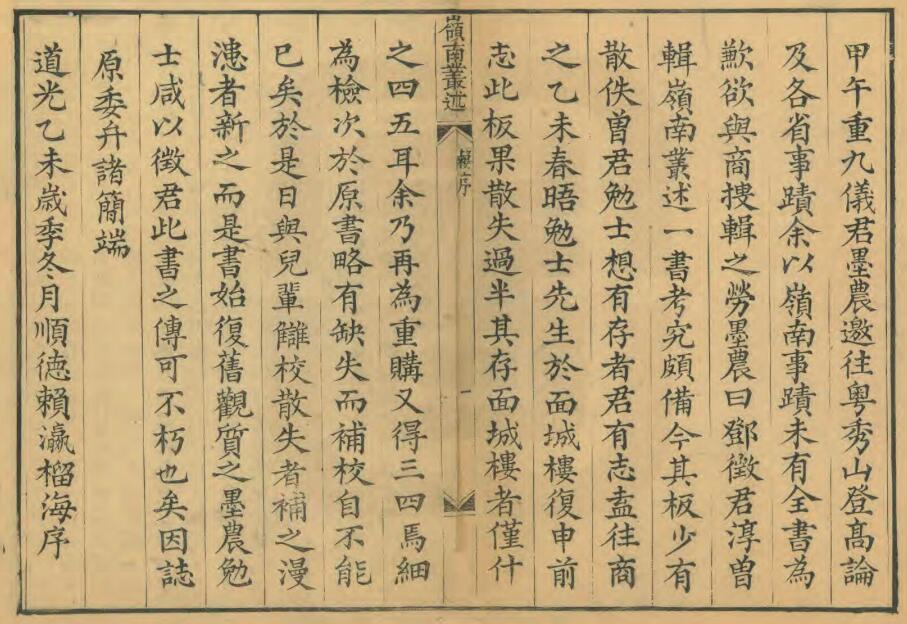 甲午重九儀君墨農邀往粤秀山登髙論
及各省事蹟余以嶺南事蹟未有全書為
歉欲與商搜輯之勞墨農曰鄧徵君淳曽
輯嶺南叢述一書考究頗備今其板少有
散佚曽君勉士想有存者君有志盍往商
之乙未春晤勉士先生於面城樓復申前
志此板果散失過半其存面城樓者僅什
嶺南叢述
賴序
一
之四五耳余乃再為重購又得三四焉細
為檢次於原書略有缺失而補校自不能
已矣於是日與兒輩讎校散失者補之漫
漶者新之而是書始復舊觀質之墨農勉
士咸以徵君此書之傳可不朽也矣因誌
原委弁諸簡端
道光乙未嵗季冬月順德賴瀛榴海序